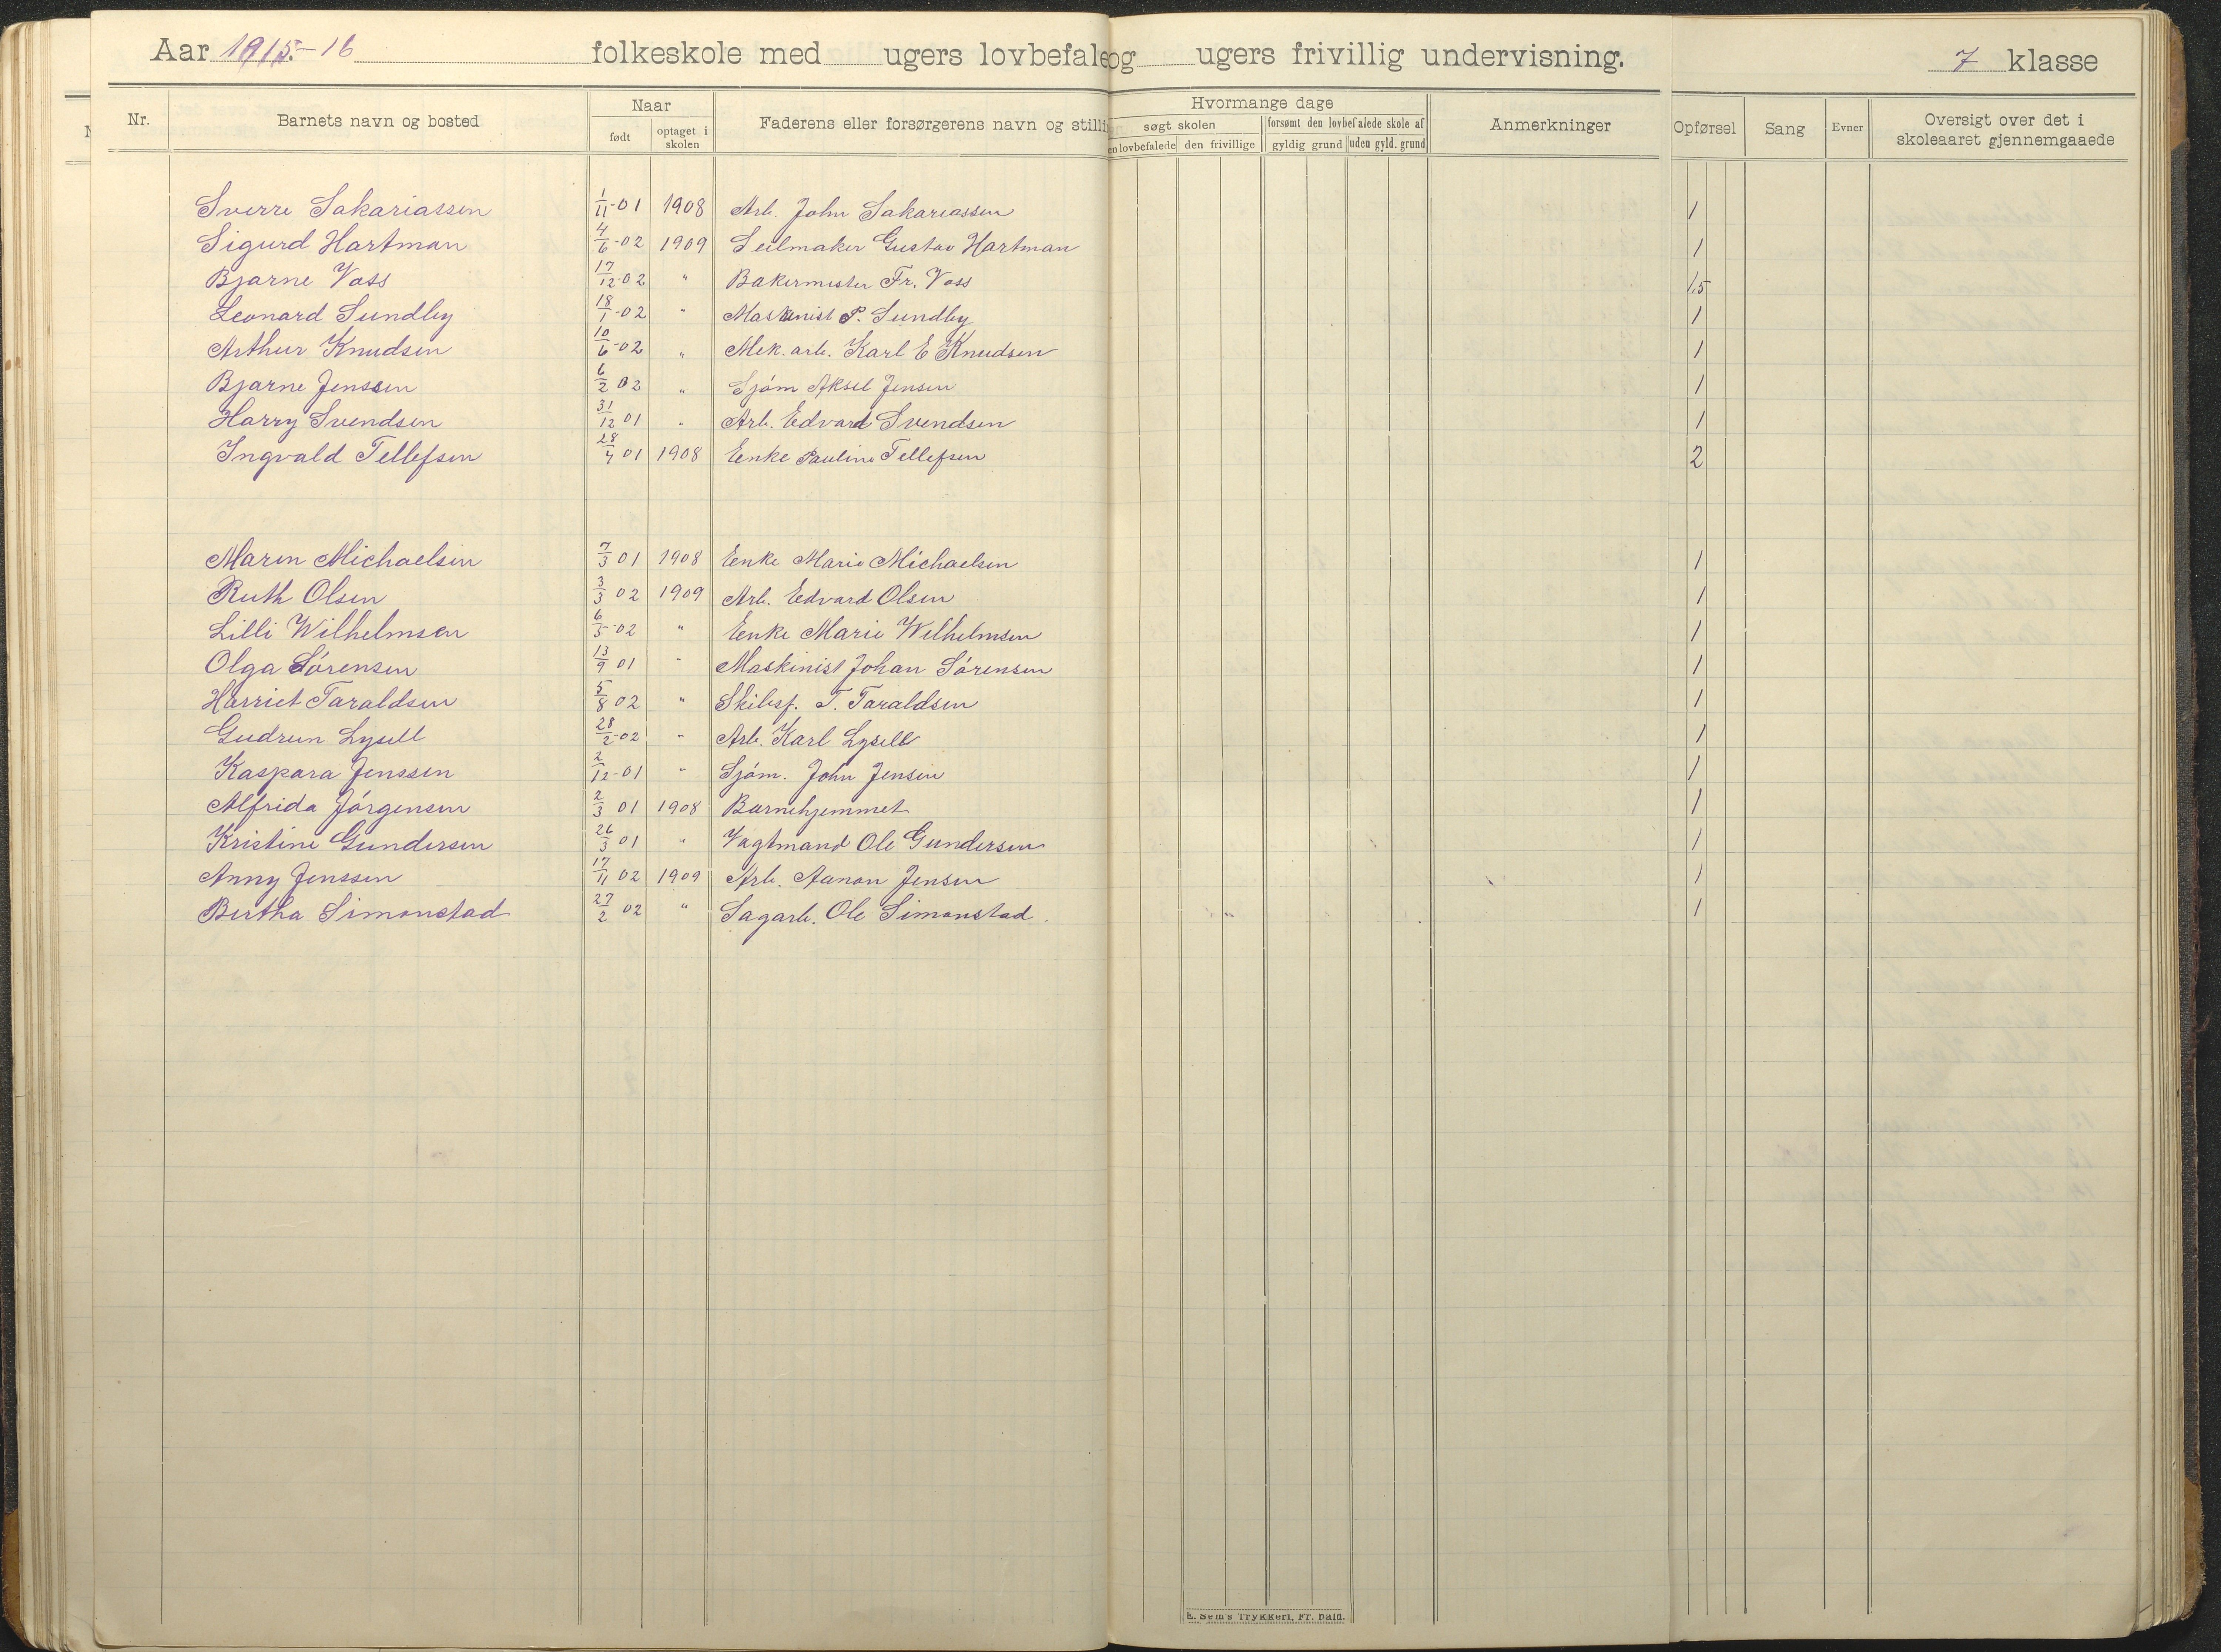 Aar 1915-16 folkeskole med ugers lovbefale og ugers frivillig undervisning. 7 klasse
Nr. Barnets navn og bosted Naar født optaget i skolen Faderens eller forsørgerens navn og stilli Hvormange dage søgt skolen en lovbefalede den frivillige forsømt den lovbefalede skole af gyldig grund uden gyld. grund Anmerkninger Opførsel Sang Evner Oversigt over det i skoleaaret gjennemgaaede
Sverre Sakariassen 1/11-01 1908 Arb. John Sakariassen 1
Sigurd Hartman 4/6-02 1909 Seilmaker Gustav Hartman 1
Bjarne Voss 17/12-02 " Bakermester Fr. Voss 1,5
Leonard Sundby 18/1-02 " Maskinist P. Sundby 1
Arthur Knudsen 10/6-02 " Mek. arb. Karl E Knudsen 1
Bjarne Jenssen 6/2 02 " Sjøm Aksel Jensen 1
Harry Svendsen 31/12 01 " Arb. Edvard Svendsen 1
Ingvald Tellefsen 28/4 01 1908 Enke Pauline Tellefsen 2
Maren Michaelsen 7/3 01 1908 Enke Marie Michaelsen 1
Ruth Olsen 3/3 02 1909 Arb. Edvard Olsen 1
Lilli Wilhelmsen 6/5-02 " Enke Marie Wilhelmsen 1
Olga Sørensen 13/9 01 " Maskinist Johan Sørensen 1
Harriet Taraldsen 5/8 02 " Skibsf. T. Taraldsen 1
Gudrun Lysell 28/2-02 " Arb. Karl Lysell 1
Kaspara Jenssen 2/12-01 " Sjøm. John Jensen 1
Alfrida Jørgensen 2/3 01 1908 Barnehjemmet 1
Kristine Gundersen 26/3 01 " Vagtmand Ole Gundersen 1
Anny Jenssen 17/11 02 1909 Arb. Aanon Jensen 1
Bertha Simonstad 27/2 02 " Sagarb. Ole Simonstad. 1
E. Sems Trykkeri, Fr. hald.